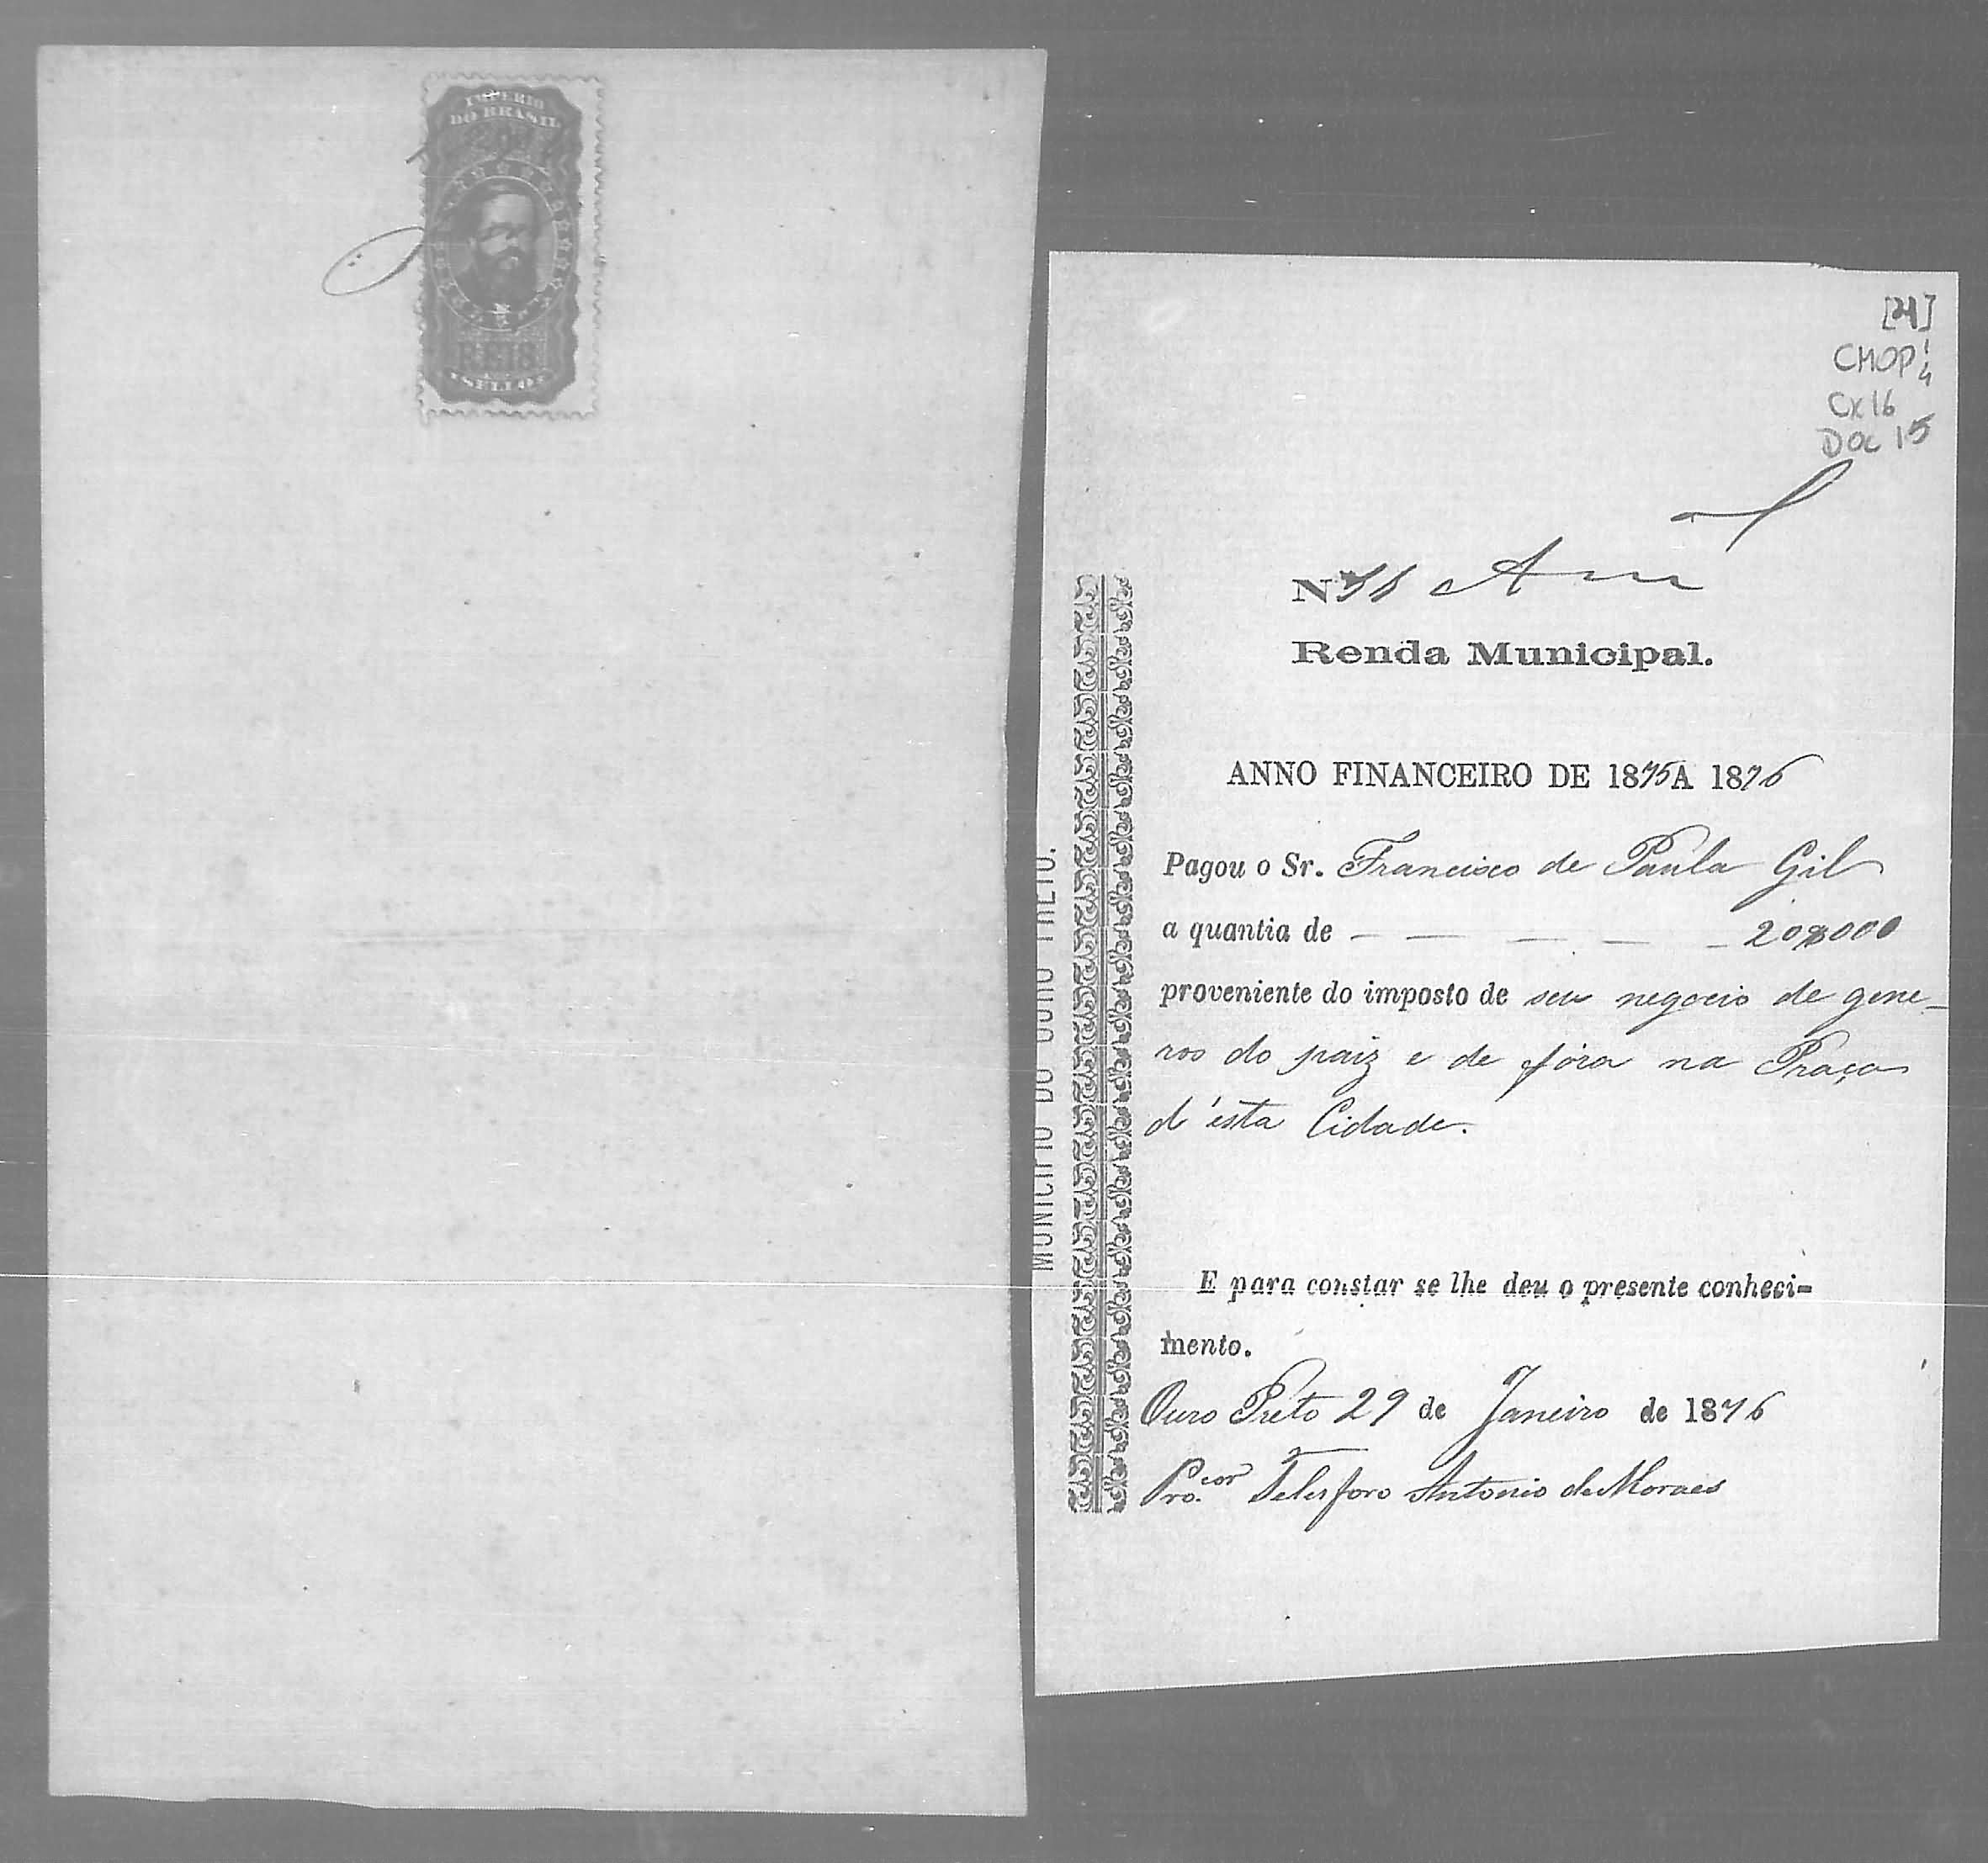 IMPERIO
DO BRASIL
REIS
SELLO
[21]
CMOP 1/4
Cx 16
DOC 15
Nº
Renda Municipal.
ANNO FINANCEIRO DE 1875 A 1876
Pagou o Sr. Francisco de Paula Gil
a quantia de — — — — — 20$000
proveniente do imposto de seu negocio de gene-
ros do paiz e de fóra na Praça
d'esta Cidade.
E para constar se lhe deu o presente conheci-
mento.
Ouro Preto 29 de Janeiro de 1876
Pro.cor Telesforo Antonio de Moraes
MUNICIPIO DO OURO PRETO.